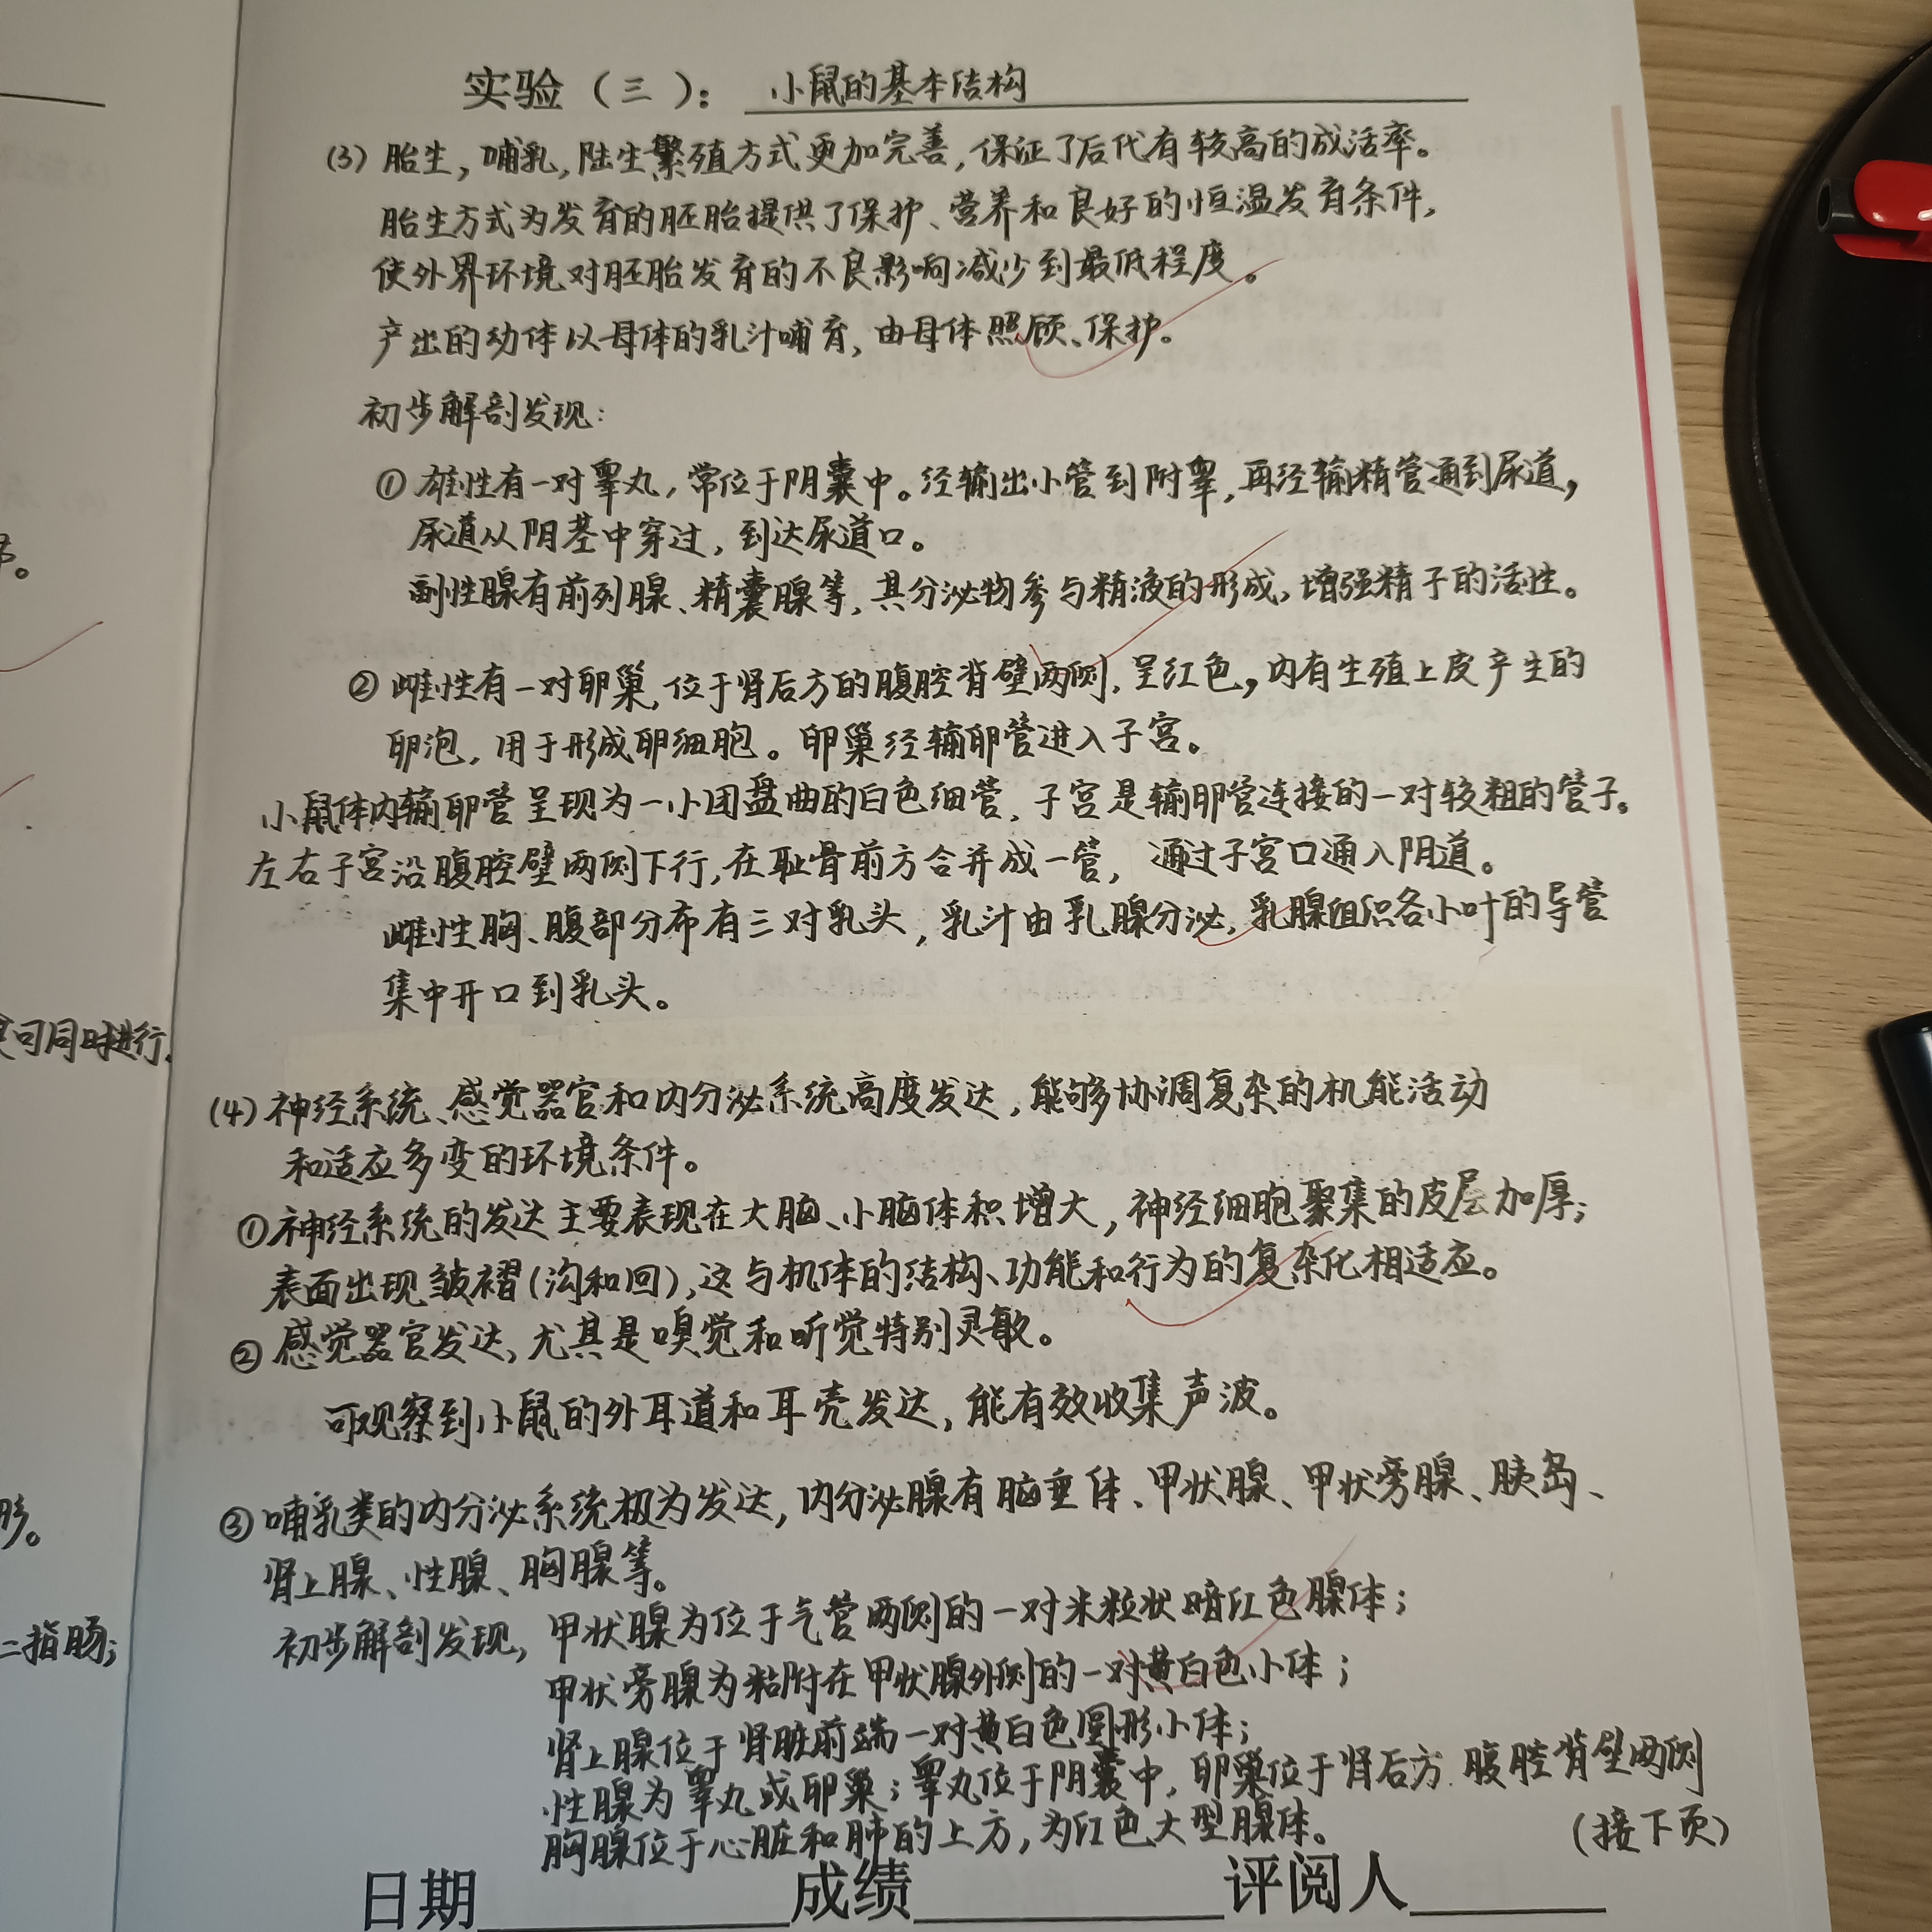 实验（三）：小鼠的基本结构
(3) 胎生，哺乳，陆生繁殖方式更加完善，保证了后代有较高的成活率。
胎生方式为发育的胚胎提供了保护、营养和良好的恒温发育条件，
使外界环境对胚胎发育的不良影响减少到最低程度。
产出的幼体以母体的乳汁哺育，由母体照顾、保护。
初步解剖发现：
① 雄性有一对睾丸，常位于阴囊中。经输出小管到附睾，再经输精管通到尿道，
尿道从阴茎中穿过，到达尿道口。
副性腺有前列腺、精囊腺等，其分泌物参与精液的形成，增强精子的活性。
② 雌性有一对卵巢，位于肾后方的腹腔背壁两侧，呈红色，内有生殖上皮产生的
卵泡，用于形成卵细胞。卵巢经输卵管进入子宫。
小鼠体内输卵管呈现为一小团盘曲的白色细管，子宫是输卵管连接的一对较粗的管子。
左右子宫沿腹腔壁两侧下行，在耻骨前方合并成一管，通过子宫口通入阴道。
雌性胸、腹部分布有三对乳头，乳汁由乳腺分泌，乳腺组织各小叶的导管
集中开口到乳头。
(4) 神经系统、感觉器官和内分泌系统高度发达，能够协调复杂的机能活动
和适应多变的环境条件。
① 神经系统的发达主要表现在大脑、小脑体积增大，神经细胞聚集的皮层加厚；
表面出现皱褶(沟和回)，这与机体的结构、功能和行为的复杂化相适应。
② 感觉器官发达，尤其是嗅觉和听觉特别灵敏。
可观察到小鼠的外耳道和耳壳发达，能有效收集声波。
③ 哺乳类的内分泌系统极为发达，内分泌腺有脑垂体、甲状腺、甲状旁腺、胰岛、
肾上腺、性腺、胸腺等。
初步解剖发现，甲状腺为位于气管两侧的一对米粒状暗红色腺体；
甲状旁腺为粘附在甲状腺外侧的一对黄白色小体；
肾上腺位于肾脏前端一对黄白色圆形小体；
性腺为睾丸或卵巢；睾丸位于阴囊中，卵巢位于肾后方.腹腔背壁两侧
胸腺位于心脏和肺的上方，为红色大型腺体。
(接下页)
日期 成绩 评阅人
可同时进行.
形。
二指肠；